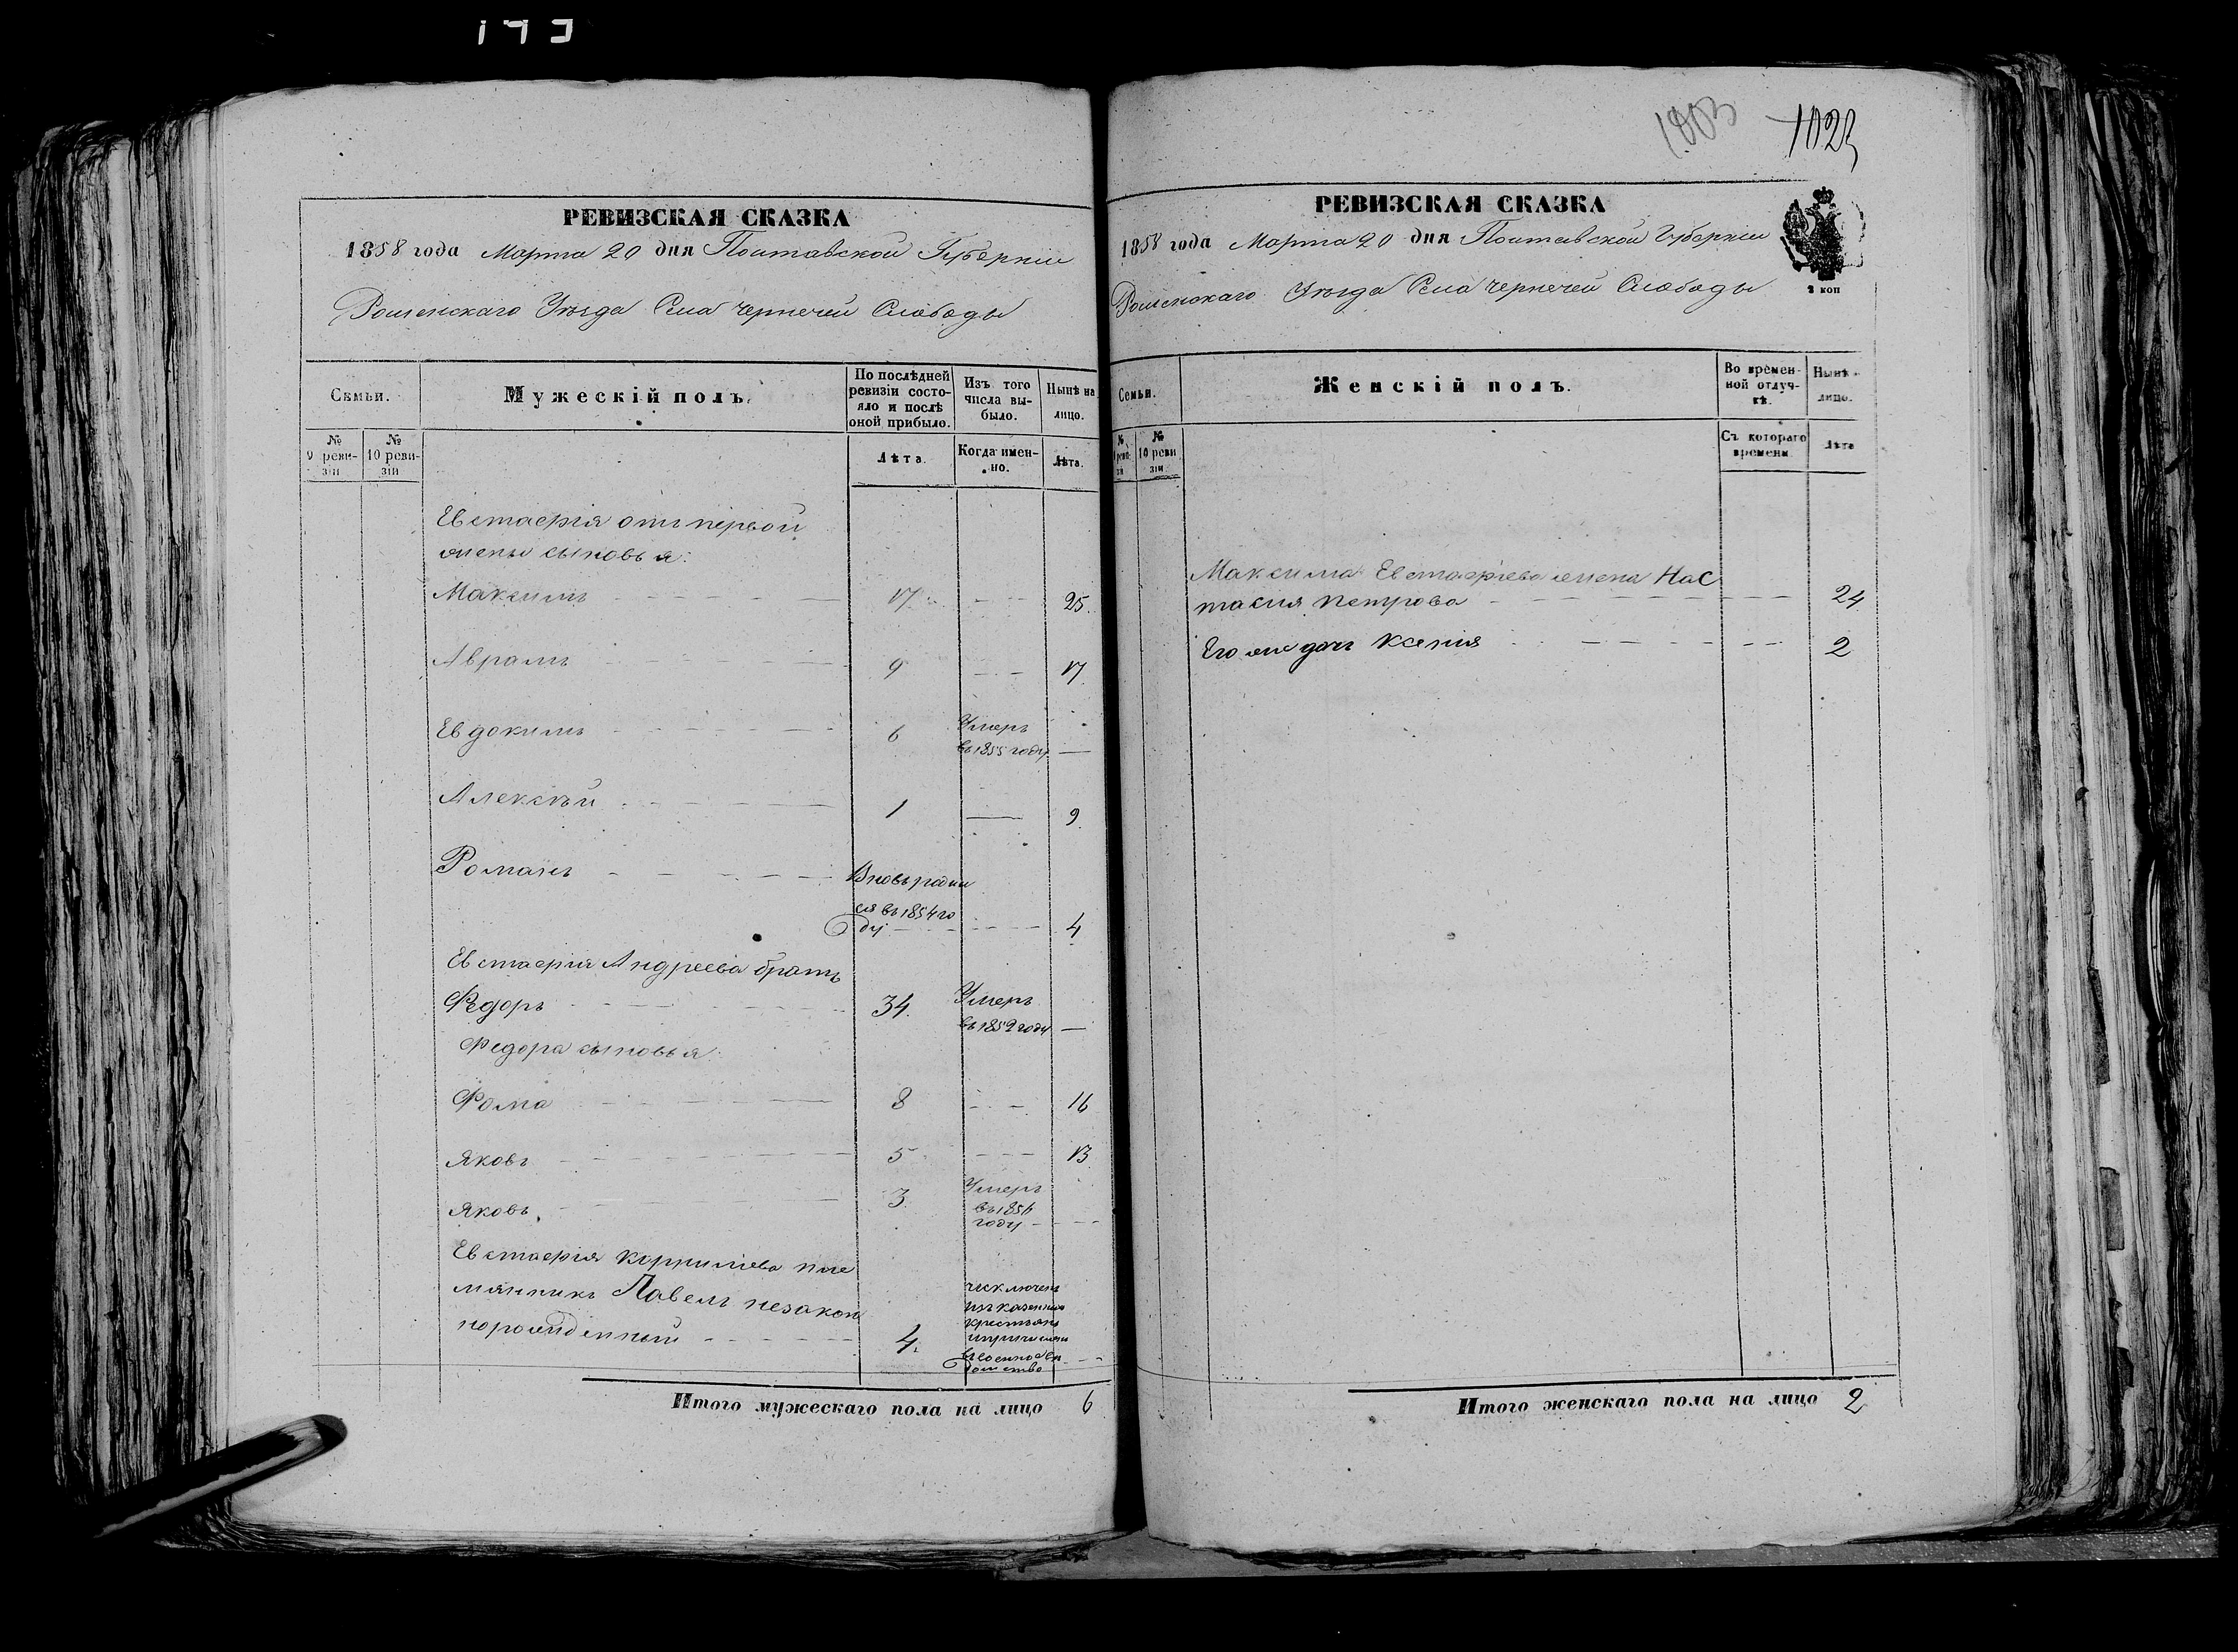 1003 1023
РЕВИЗСКАЯ СКАЗКА
1858 года Марта 20 дня Полтавской Губерніи
Роменскаго Уѣзда Села Чернечей Слободы
Семьи.
Мужескій полъ.
По послѣдней ревизіи состояло и послѣ оной прибыло.
Изъ того числа выбыло.
Нынѣ на лицо.
№ 9 ревизіи
№ 10 ревизіи
Лѣта.
Когда именно.
Лѣта.
Евстафія отъ первой
жены сыновья:
Максимъ 17 25.
Аврамъ 9 17
Евдокимъ 6 Умеръ
въ 1855 году
Алексѣй 1 9
Романъ Вновь роди
ся въ 1854 го
ду 4
Евстафія Андреева братъ
Федоръ 34. Умеръ
въ 1852 году
Федора сыновья:
Фома 8 16
Яковъ 5 13
Яковъ 3 Умеръ
въ 185
году
Евстафія Корнилева пле
мянникъ Павелъ незакон
норожденный 4.
исключенъ
изъ казенныхъ
крестьянъ
и причисленъ
въ военное вѣ
домство
Итого мужескаго пола на лицо 6
РЕВИЗСКАЯ СКАЗКА
1858 года Марта 20 дня Полтавской Губерніи
Роменскаго Уѣзда Села Чернечей Слободы
2 коп
Семьи.
Женскій полъ.
Во временной отлучкѣ.
Нынѣ лицо.
№ реви зи
№ 10 реви зіи
Съ котораго времени
Лѣта
Максима Евстафіева жена Нас
тасия Петрова 24
Его же дочь Ксенія 2
Итого женскаго пола на лицо 2